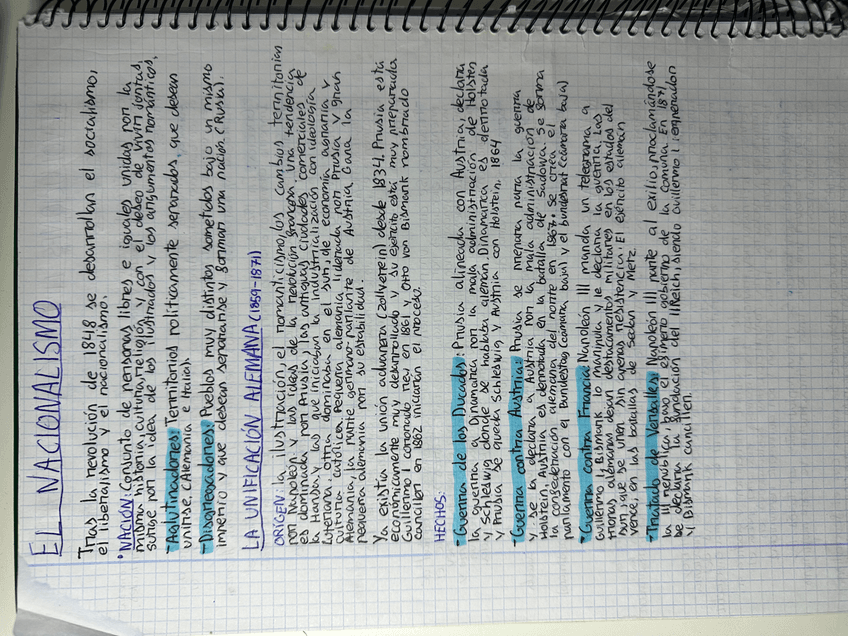 EL NACIONALISMO
Tras la revolución de 1848 se desarrollan el socialismo,
el liberalismo y el nacionalismo.
*NACIÓN: Conjunto de personas libres e iguales unidas por la
misma historia, cultura, religión y con el deseo de vivir juntas,
surge por la idea de los ilustrados y los argumentos románticos.
-Aglutinadores: Territorios políticamente separados, que desean
unirse. (Alemania e Italia).
-Disgregadores: Pueblos muy distintos sometidos bajo un mismo
imperio y que desean separarse y forman una nación (Rusia).
LA UNIFICACIÓN ALEMANA (1859-1871)
ORIGEN: la ilustración, el romanticismo, los cambios territoriales
por Napoleón y las ideas de la revolución francesa. Una tendencia
es dominada por Prusia, las antiguas ciudades comerciales de
la Hansa y las que iniciaban la industrialización con ideología
luterana; otra dominaba en el sur, de economía agraria y
cultura católica. Pequeña alemania liderada por Prusia y gran
Alemania, la parte germano-parlante de Austria. Gana la
pequeña alemania por su estabilidad.
Ya existía la unión aduanera (zollverein) desde 1834. Prusia está
económicamente muy desarrollado y su ejército está muy preparado.
Guillermo I coronado rey en 1861 y Otto von Bismark nombrado
canciller en 1862 iniciarían el proceso.
HECHOS:
-Guerra de los Ducados: Prusia alineada con Austria, declara
la guerra a Dinamarca por la mala administración de Holsten
y Schleswig donde se hablaba alemán. Dinamarca es derrotada
y Prusia se queda Schleswig y Austria con Holstein. 1864
-Guerra contra Austria: Prusia se prepara para la guerra
y se la declara a Austria por la mala administración de
Holstein. Austria es derrotada en la batalla de Sadowa. Se forma
la confederación alemana del norte en 1867. Se crea el
parlamento con el Bundestag (camara baja) y el bundesrat (cámara baja)
-Guerra contra Francia: Napoleón III manda un telegrama a
Guillermo, Bismark lo manipula y le declara la guerra, las
tropas alemanas dejan destacamentos militares en los estados del
sur, que se unen sin apenas resistencia. El ejército alemán
vence, en las batallas de Sedan y Metz.
-Tratado de Versalles: Napoleón III parte al exilio, proclamándose
la III república bajo el efímero gobierno de la comuna. En 1871
se declara la fundación del II Reich, siendo Guillermo I, emperador
y Bismark canciller.